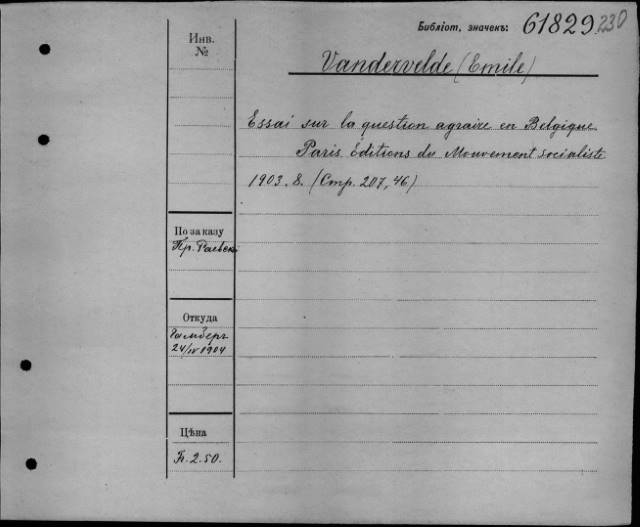 Библіот. значекъ: 61829. 230
Инв.
№
Vandervelde (Emile)
Essai sur la question agraire en Belgique
Paris Éditions du Mouvement socialiste
1903. 8. (Стр. 207, 46)
По заказу
Пр. Раевск
Откуда
Гамберг
24/IV 1904
Цѣна
Fr. 2.50.